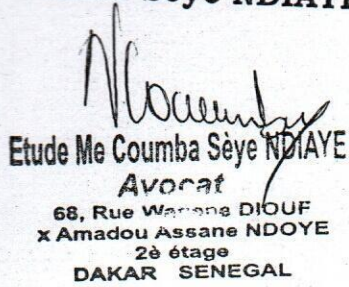 Sèye NDIAYE
Etude Me Coumba Sèye NDIAYE
Avocat
68, Rue DIOUF
x Amadou Assane NDOYE
2è étage
DAKAR SENEGAL